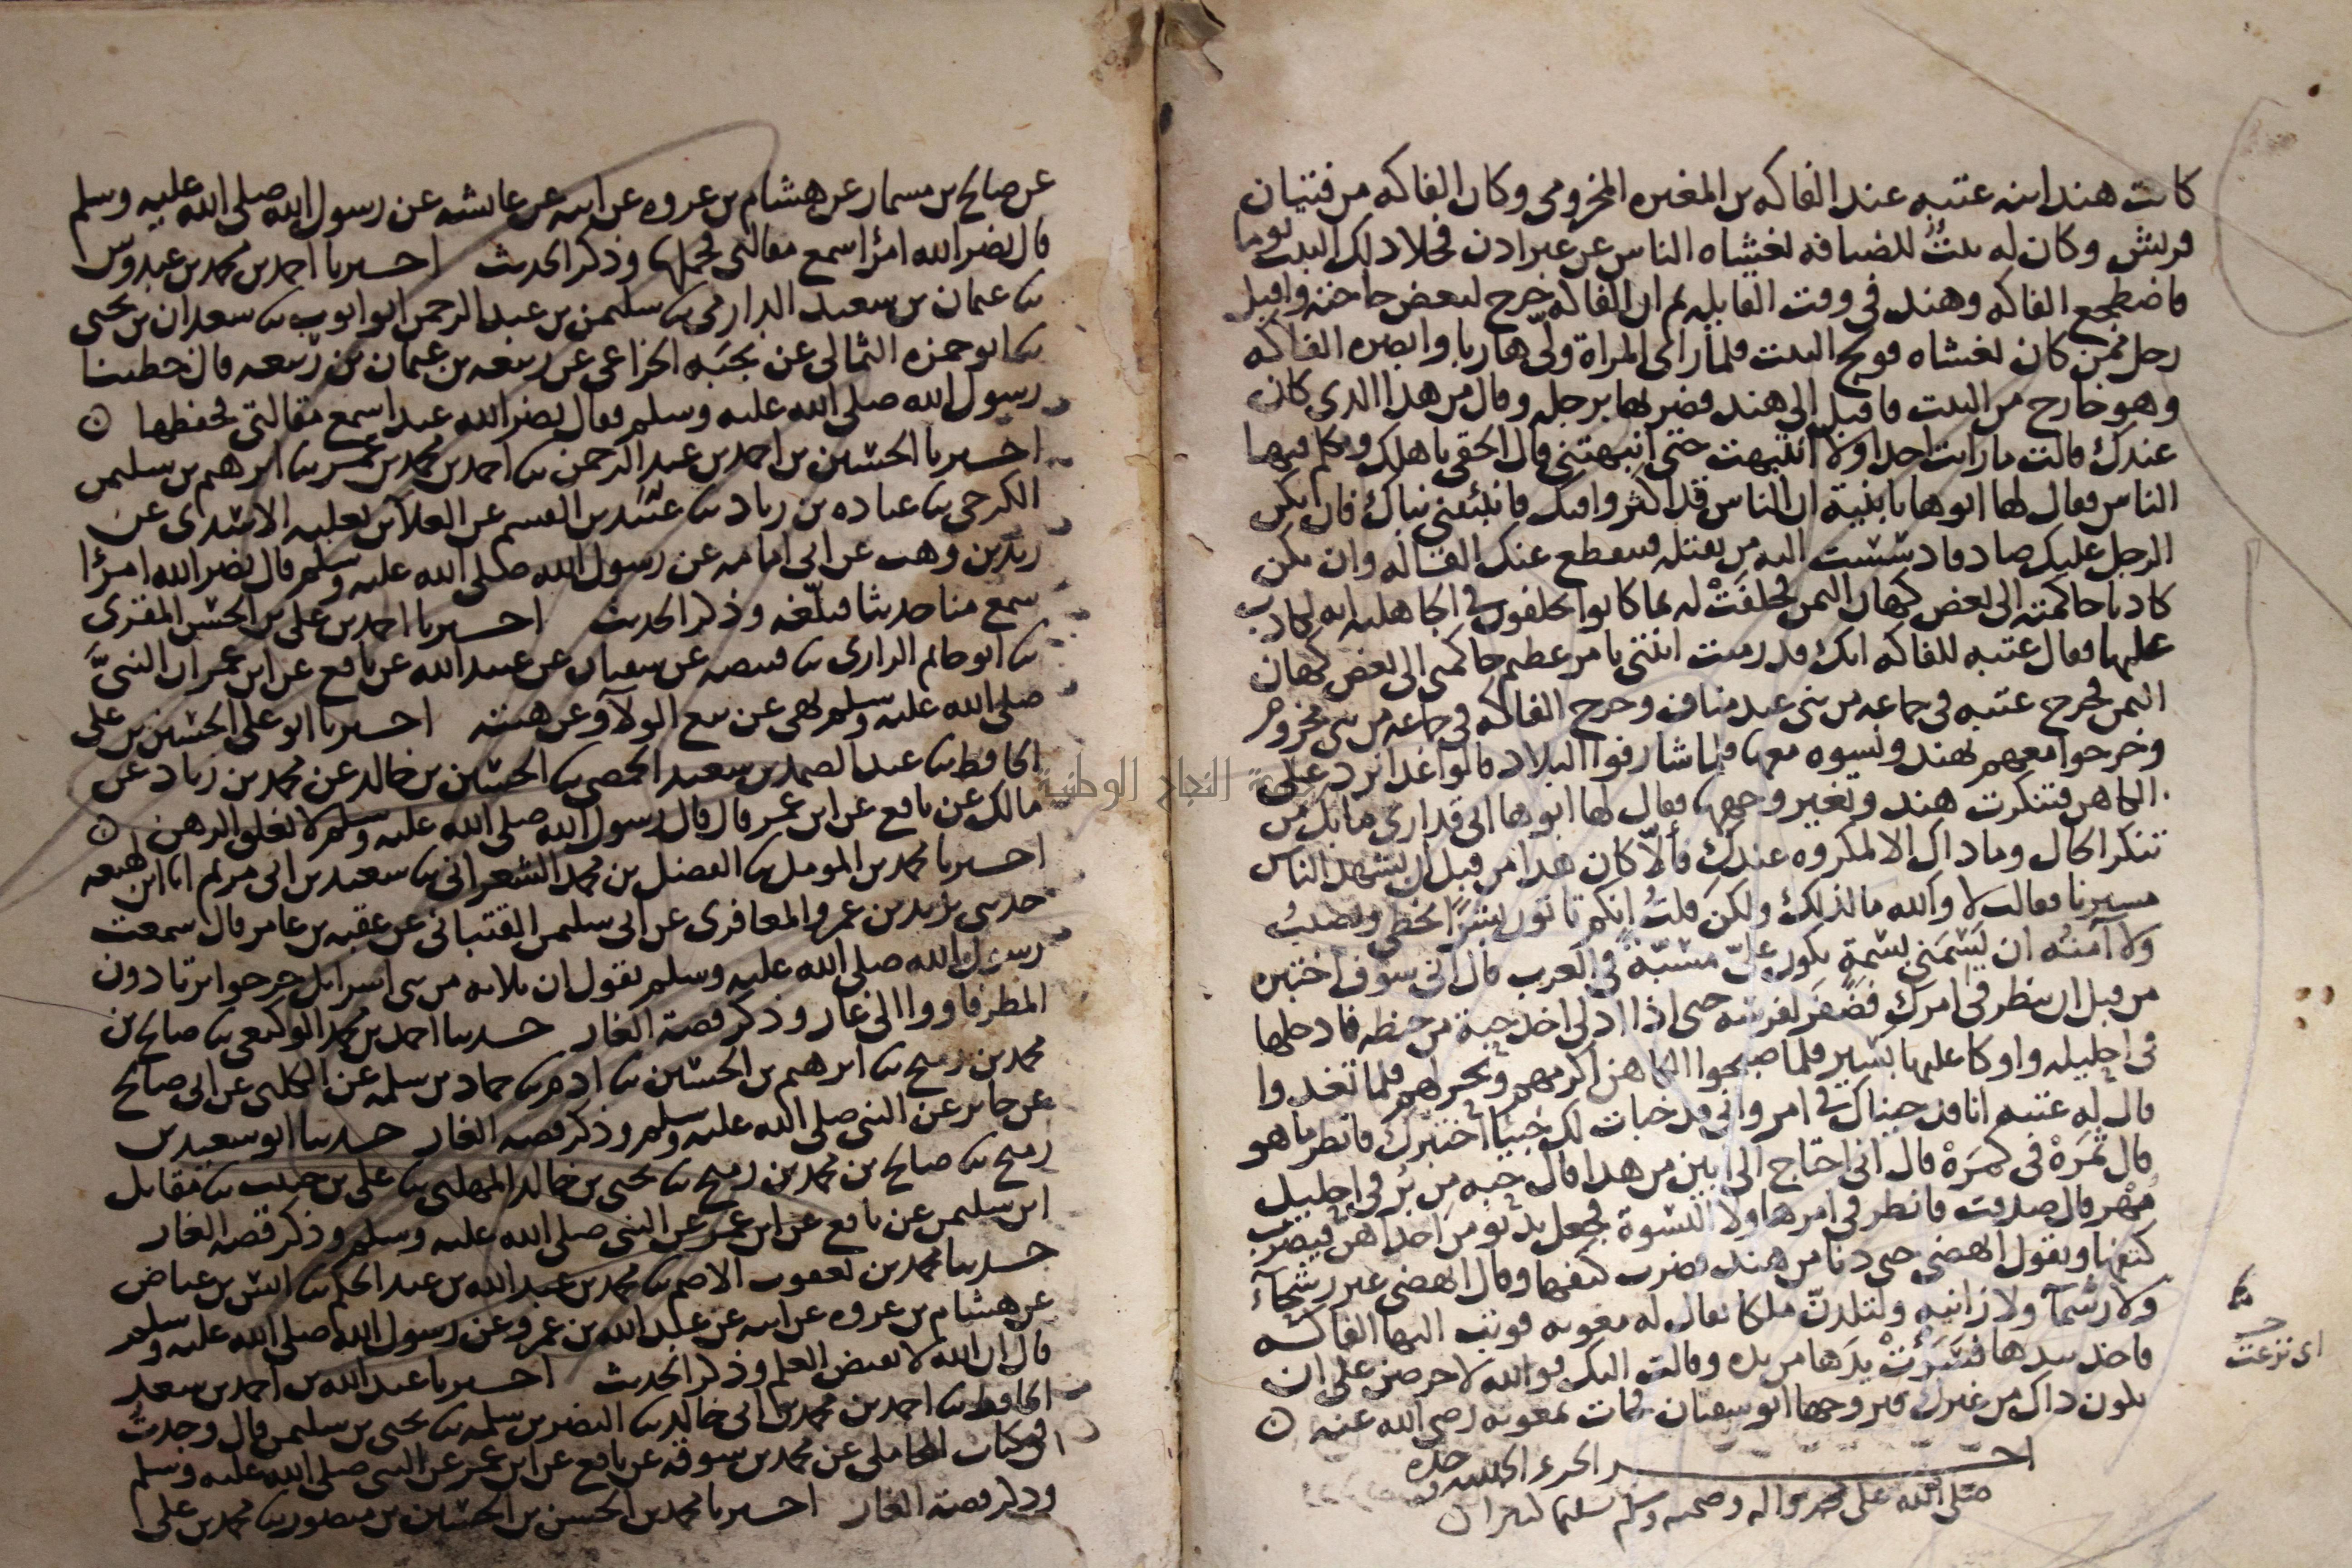 كانت هند ابنه عتبه عند الفاكه بن المغيره المخزومى وكان الفاكه من فتيان
قريش وكان له بيتٌ للضيافه يغشاه الناس عن غير اذن فخلا ذلك البيت يوما
فاضطجع الفاكه وهند فى وقت القايله ثم ان الفاكه خرج لبعض حاجته واقبل
رجل ممن كان يغشاه فولج البيت فلما راى المراة ولّى هاربا وابصره الفاكه
وهو خارج من البيت فاقبل الى هند فضربها برجله وقال من هذا الذى كان
عندك قالت ما رايت احدا ولا انتبهت حتى انبهتنى قال الحقى باهلك وتكلم فيها
الناس فقال لها ابوها يا بنية ان الناس قد اكثروا فيك فانبئينى نباك فان يكن
الرجل عليك صادقا دسست اليه من يقتله فينقطع عنك القاله وان يكن
كاذبا حاكمته الى بعض كهان اليمن فحلفَتْ له بما كانوا يحلفون فى الجاهليه انه لكاذب
عليها فقال عتبه للفاكه انك قد رميت ابنتى بامر عظيم حاكمنى الى بعض كهان
اليمن فخرج عتبه فى جماعه من بنى عبد مناف وخرج الفاكه فى جماعه من بنى مخزوم
وخرجوا معهم بهند ونسوه معها فلما شارفوا البلاد قالوا غدا نرد على
الكاهن فتنكرت هند وتغير وجهها فقال لها ابوها انى قد ارى ما بك من
تنكر الحال وما ذاك الا لمكروه عندك فألّا كان هذا من قبل ان يشهد الناس
مسيرنا فقالت لا والله ما لذلك ولكن قلتُ انكم تاتون بشرًا يخطى ويصيبُ
ولا آمنُه ان يَسِمَنى بسمةٍ يكون علىّ مسبّة فى العرب قال انى سوف اختبره
من قبل ان ينظر فى امرك فصَفَر لفرسه حتى اذا ادلى اخذ حبة من حنطه فادخلها
فى احليله واوكا عليها بسير فلما صبحوا الكاهن اكرمهم ونحر لهم فلما تغدوا
قال له عتبه انا قد جيناك فى امر وانى قد خبات لك خبيًا اختبرك فانظر ما هو
قال ثَمرَهْ فى كمرَهْ قال انى احتاج الى ابين من هذا قال حبه من بُر فى احليل
مُهْر قال صدقت فانظر فى امر هاولا النسوة فجعل يدنو من احداهن فيضرب
كتفها ويقول انهضى حتى دنا من هند فضرب كتفها وقال انهضى غير رسحآء
ولا رسمآ ولا زانيه ولتلدنّ ملكا يقال له معويه فوثب اليها الفاكه
فاخذ بيدها فنَتَرَتْ يدَها من يده وقالت اليك فوالله لاحرصن على ان
يكون ذاك من غيرك فتزوجها ابو سفيان فجات بمعويه رضى الله عنه ن
اى نزعت
اخر الجزء الحمد لله وحده
صلى الله على محمد واله وصحبه وسلم تسليما كثيرا
عن صالح بن مسمار عن هشام بن عروه عن ابيه عن عايشه عن رسول الله صلى الله عليه وسلم
قال نضر الله امرًا سمع مقالتى فحملها وذكر الحديث اخبرنا احمد بن محمد بن عبدوس
نا عثمان بن سعيد الدارمى نا سليمن بن عبد الرحمن ابو ايوب نا سعدان بن يحيى
نا ابو حمزه الثمالى عن بجَبَه الخزاعى عن ربيعه بن عثمان بن ربيعه قال خطبنا
رسول الله صلى الله عليه وسلم فقال نضر الله عبدا سمع مقالتى فحفظها ن
اخبرنا الحسين بن احمد بن عبد الرحمن نا احمد بن محمد بن عمر نا ابرهيم بن سليمن
الكرخى نا عباده بن زياد نا عنبسه بن القسم عن العلا بن ثعلبه الاسدى عن
زيد بن وهب عن ابى امامه عن رسول الله صلى الله عليه وسلم قال نضر الله امرًا
سمع منا حديثا فبلّغه وذكر الحديث اخبرنا احمد بن على بن الحسن المقرى
نا ابو حاتم الرازى نا قبيصه عن سفيان عن عبيد الله عن نافع عن ابن عمر ان النبىَّ
صلى الله عليه وسلم نهى عن بيع الولآ وعن هبته اخبرنا ابو على الحسين بن على
الحافظ نا عبد الصمد بن سعيد الحمصى نا الحسين بن خالد عن محمد بن زياد عن
مالك عن نافع عن ابن عمر قال قال رسول الله صلى الله عليه وسلم لا يغلق الرهن ن
اخبرنا محمد بن المومل نا الفضل بن محمد الشعرانى نا سعيد بن ابى مريم انا ابن لهيعه
حدثنى يزيد بن عمرو المعافرى عن ابى سليمن القتبانى عن عقبه بن عامر قال سمعت
رسول الله صلى الله عليه وسلم يقول ان ثلاثه من بنى اسرايل خرجوا يرتادون
المطر فاووا الى غار وذكر قصة الغار حدثنا احمد بن محمد الوكيعى نا صالح بن
محمد بن رميح نا ابرهيم بن الحسين نا ادم نا حماد بن سلمه عن الكلبى عن ابى صالح
عن جابر عن النبى صلى الله عليه وسلم وذكر قصه الغار حدثنا ابو سعيد بن
رميح نا صالح بن محمد بن رميح نا يحيى بن خالد المهلبى نا على بن حبيب نا مقاتل
ابن سليمن عن نافع عن ابن عمر عن النبى صلى الله عليه وسلم وذكر قصه الغار
حدثنا محمد بن يعقوب الاصم نا محمد بن عبد الله بن عبد الحكم نا انس بن عياض
عن هشام بن عروه عن ابيه عن عبد الله بن عمرو عن رسول الله صلى الله عليه وسلم
قال ان الله لا يقبض العلم وذكر الحديث اخبرنا عبد الله بن احمد بن سعد
الحافظ نا احمد بن محمد بن ابى خالد نا النضر بن سلمه نا يحيى بن سليمن قال وجدتُ
فى كتاب المحاملى عن محمد بن سوقه عن نافع عن ابن عمر عن النبى صلى الله عليه وسلم
وذكر قصة الغار اخبرنا محمد بن الحسن بن الحسين بن منصور نا محمد بن على
النجاح الوطنية